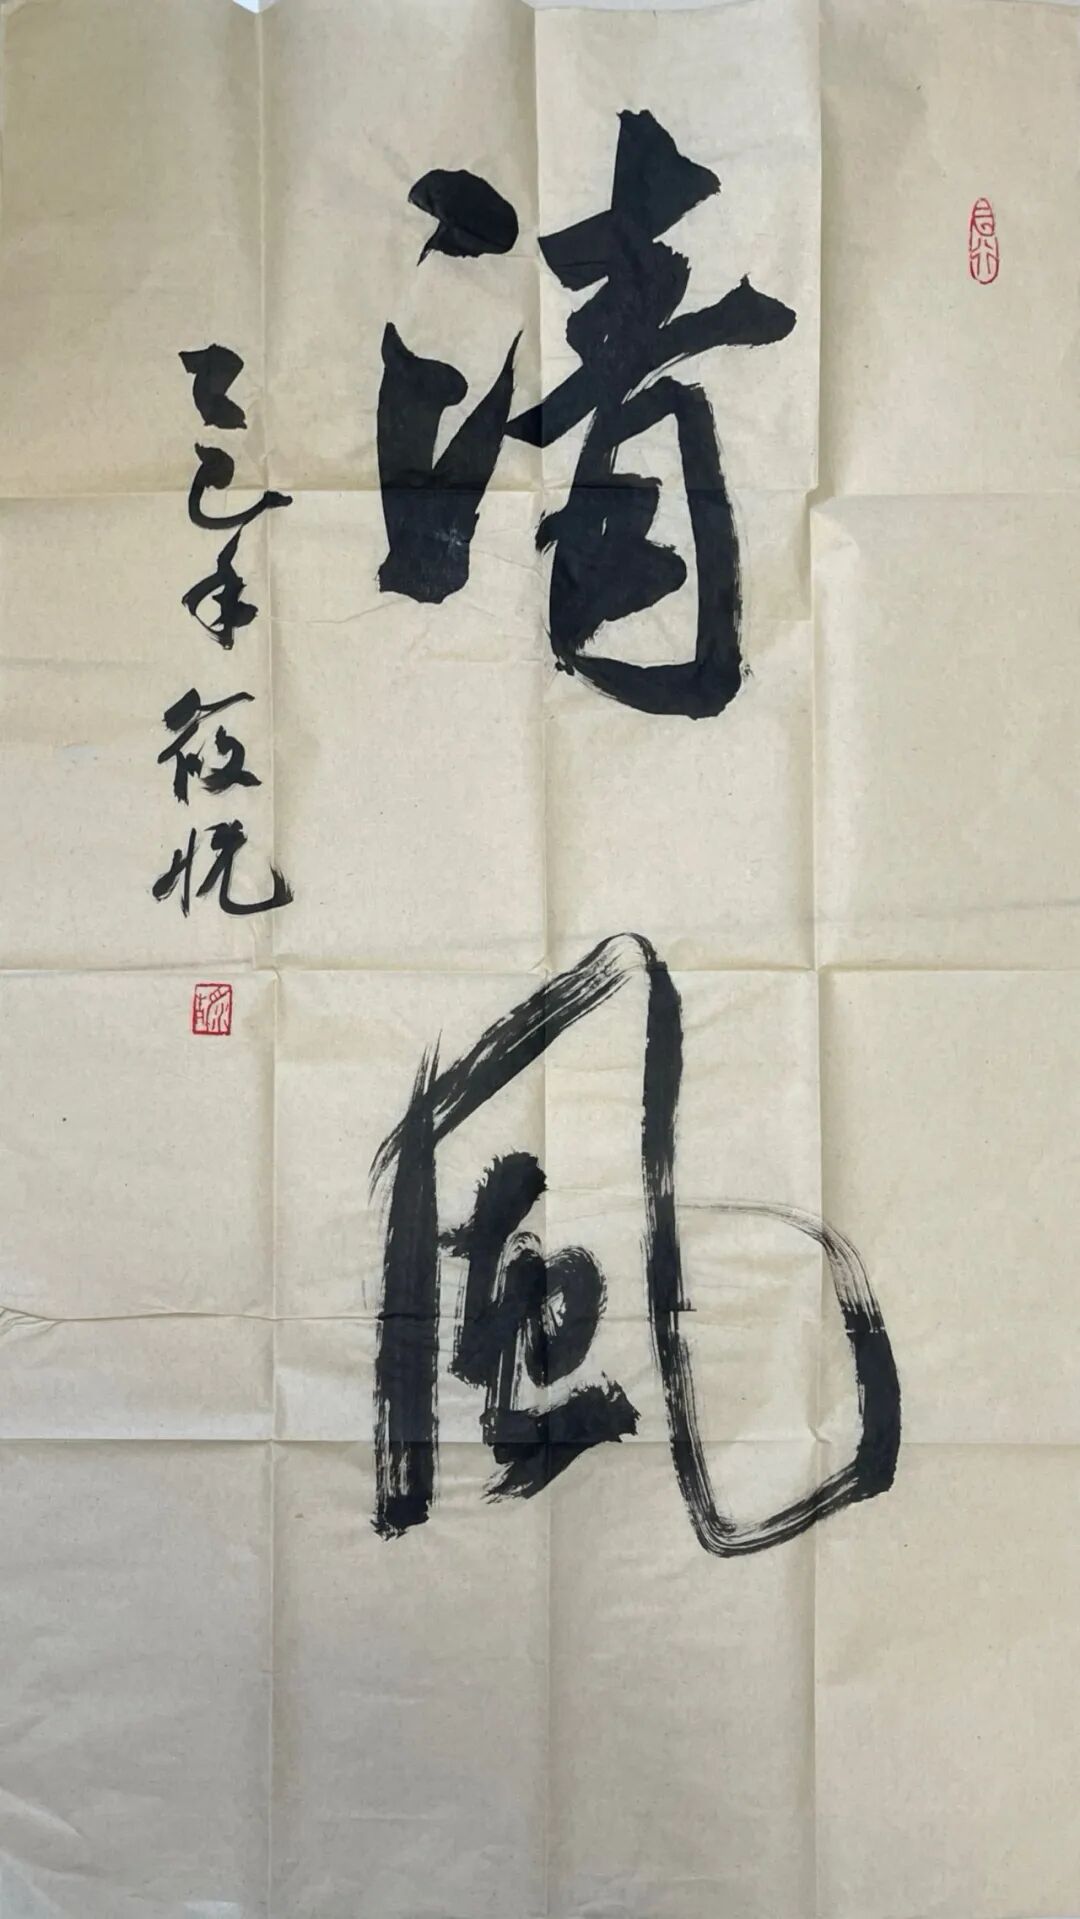 清风
乙巳年 筱悦